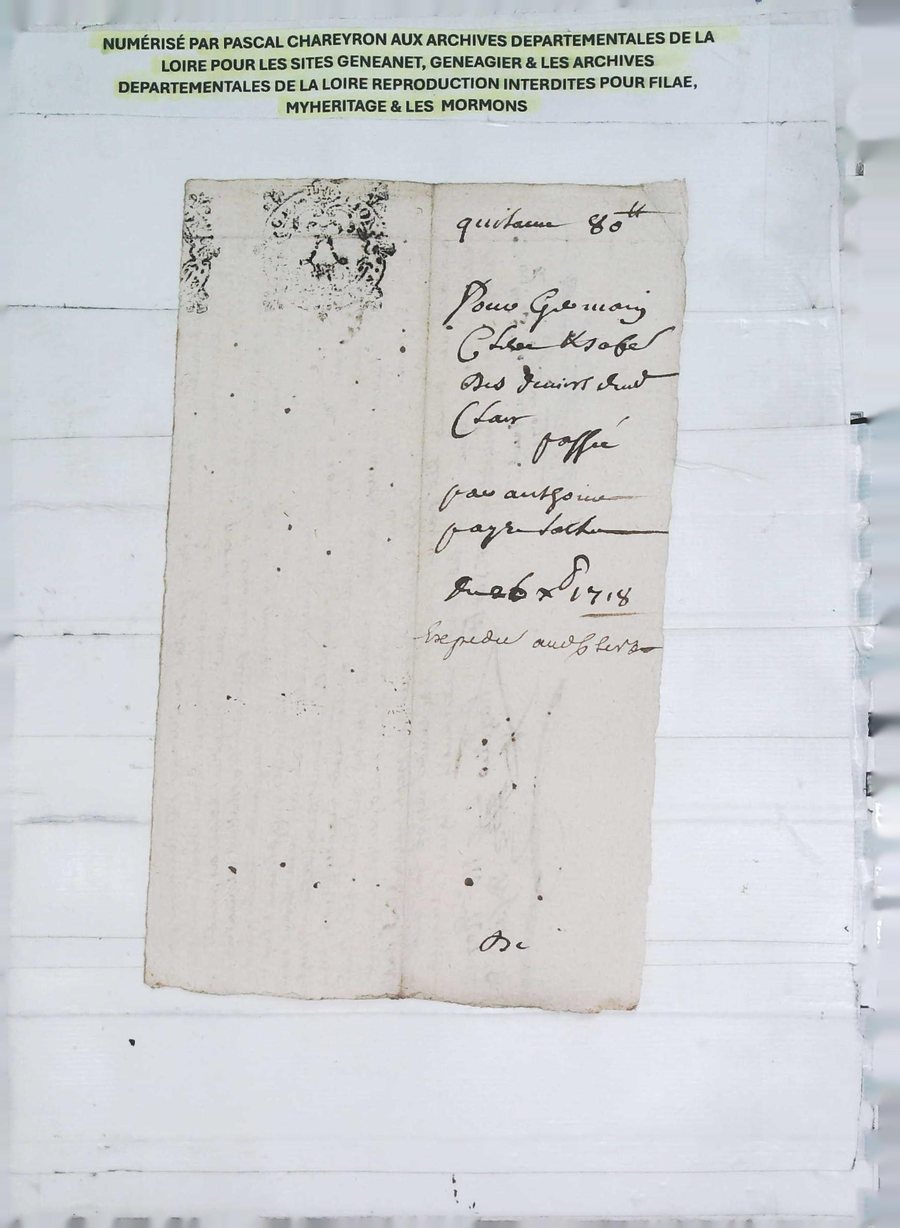 NUMÉRISÉ PAR PASCAL CHAREYRON AUX ARCHIVES DEPARTEMENTALES DE LA
LOIRE POUR LES SITES GENEANET, GENEAGIER & LES ARCHIVES
DEPARTEMENTALES DE LA LOIRE REPRODUCTION INTERDITES POUR FILAE,
MYHERITAGE & LES MORMONS
quitance 80ᵗᵗ
Pour Germain
Clair
des deniers dud
Clair
passé
par anthoine
payre
du 26 xᵇ 1718
Expedié aud